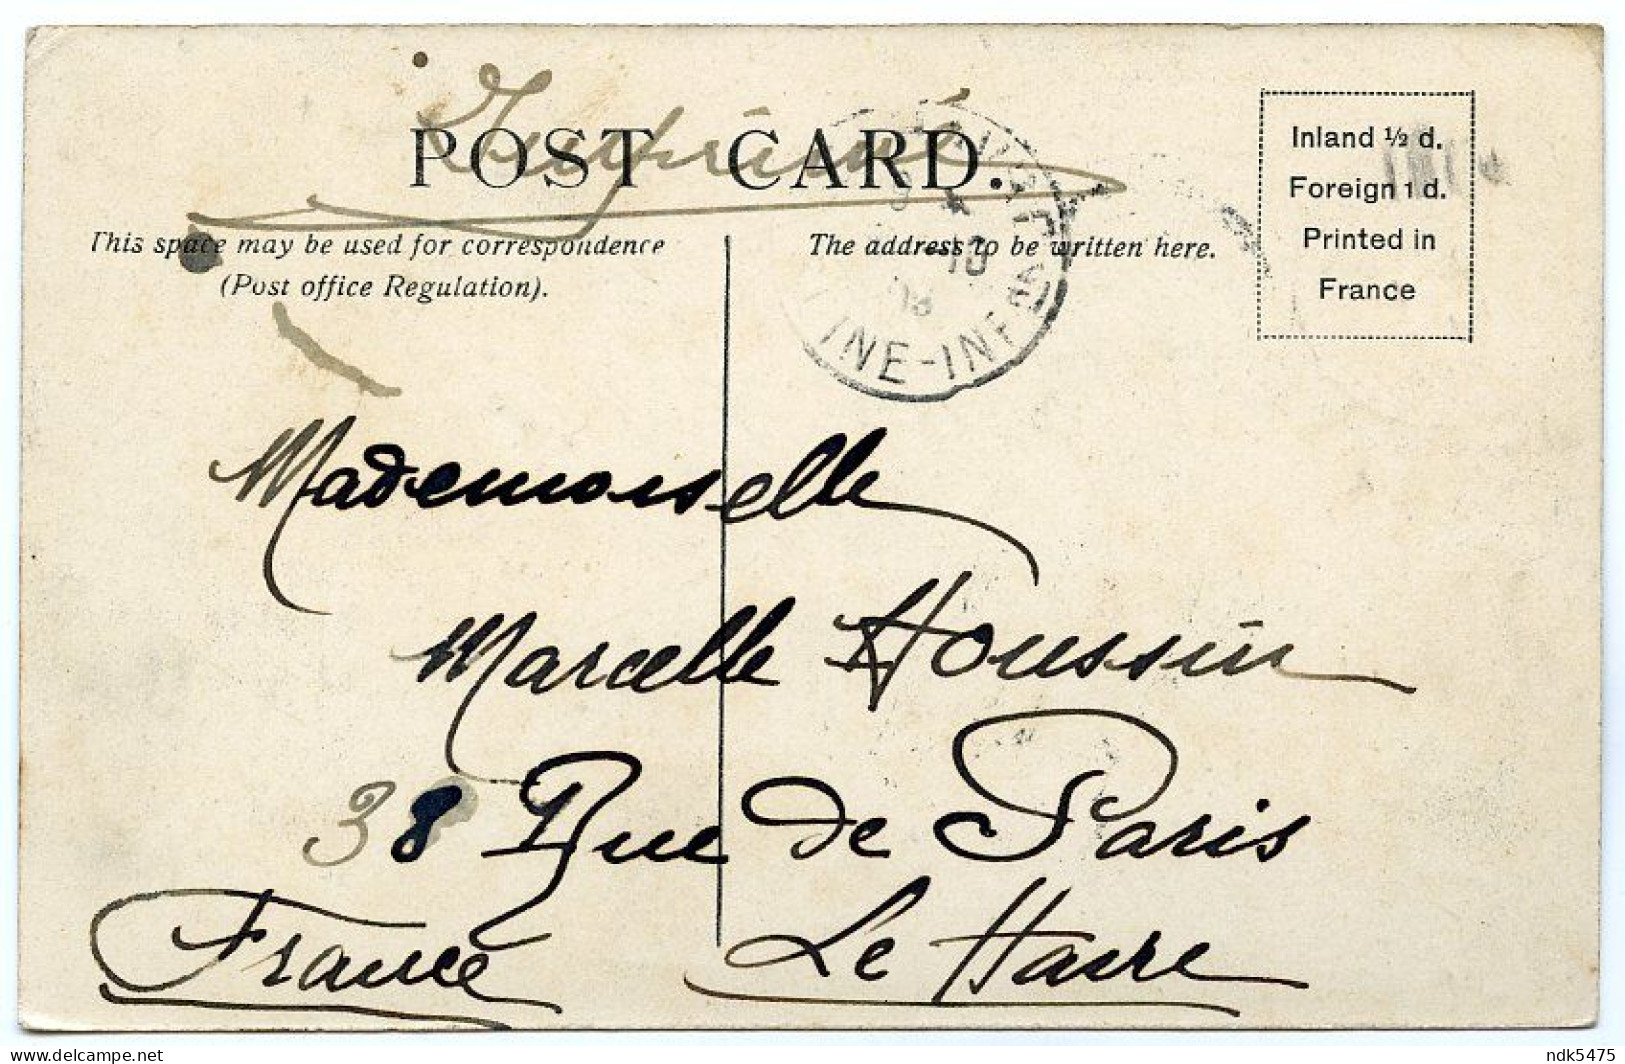 Imprimé
POST CARD.
This space may be used for correspondence
(Post office Regulation).
The address to be written here.
Inland ½ d.
Foreign 1 d.
Printed in
France
10
08
INE-INF
Mademoiselle
Marcelle Houssin
38 Rue de Paris
Le Havre
France
delcampe.net
ndk5475